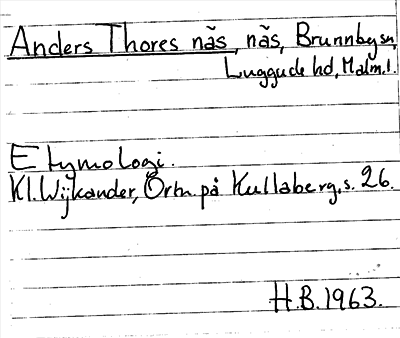 Anders Thores näs, näs, Brunnby sn,
Luggude hd, Malm.l.
Etymologi.
Kl. Wijkander, Ortn. på Kullaberg, s. 26.
H.B. 1963.